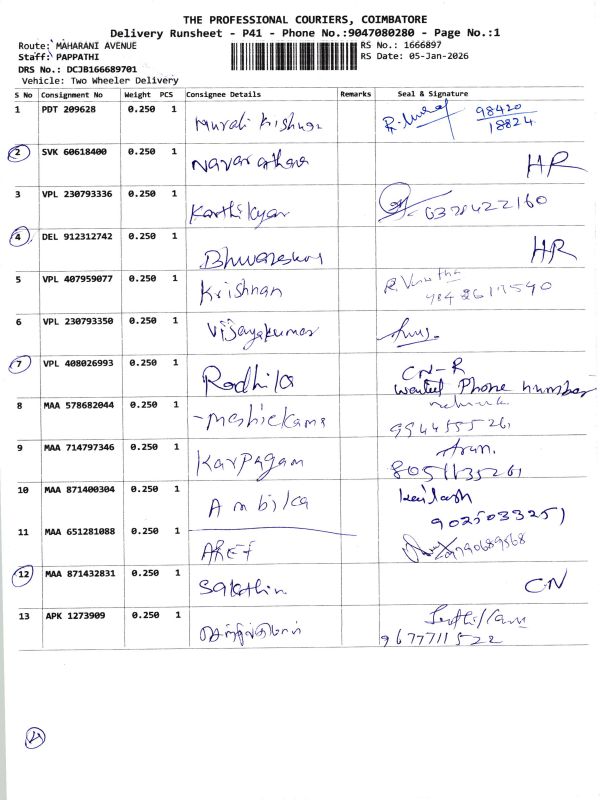 THE PROFESSIONAL COURIERS, COIMBATORE
Delivery Runsheet - P41 - Phone No.:9047080280 - Page No.:1
Route: MAHARANI AVENUE
Staff: PAPPATHI
DRS No.: DCJB166689701
Vehicle: Two Wheeler Delivery
RS No.: 1666897
RS Date: 05-Jan-2026
S No Consignment No Weight PCS Consignee Details Remarks Seal & Signature
1 PDT 209628 0.250 1 Murali Krishnan 98420 18824
2 SVK 60618400 0.250 1 HR
3 VPL 230793336 0.250 1 Karthikyan
4 DEL 912312742 0.250 1 HR
5 VPL 407959077 0.250 1 Krishnan
6 VPL 230793350 0.250 1 Vijayakumar
7 VPL 408026993 0.250 1 Radhika CN-R
Phone number
8 MAA 578682044 0.250 1
9 MAA 714797346 0.250 1 Karpagam Arun. 8051135261
10 MAA 871400304 0.250 1 Ambika Kailash 9025033251
11 MAA 651281088 0.250 1 9790689568
12 MAA 871432831 0.250 1 CN
13 APK 1273909 0.250 1 9677711522
4